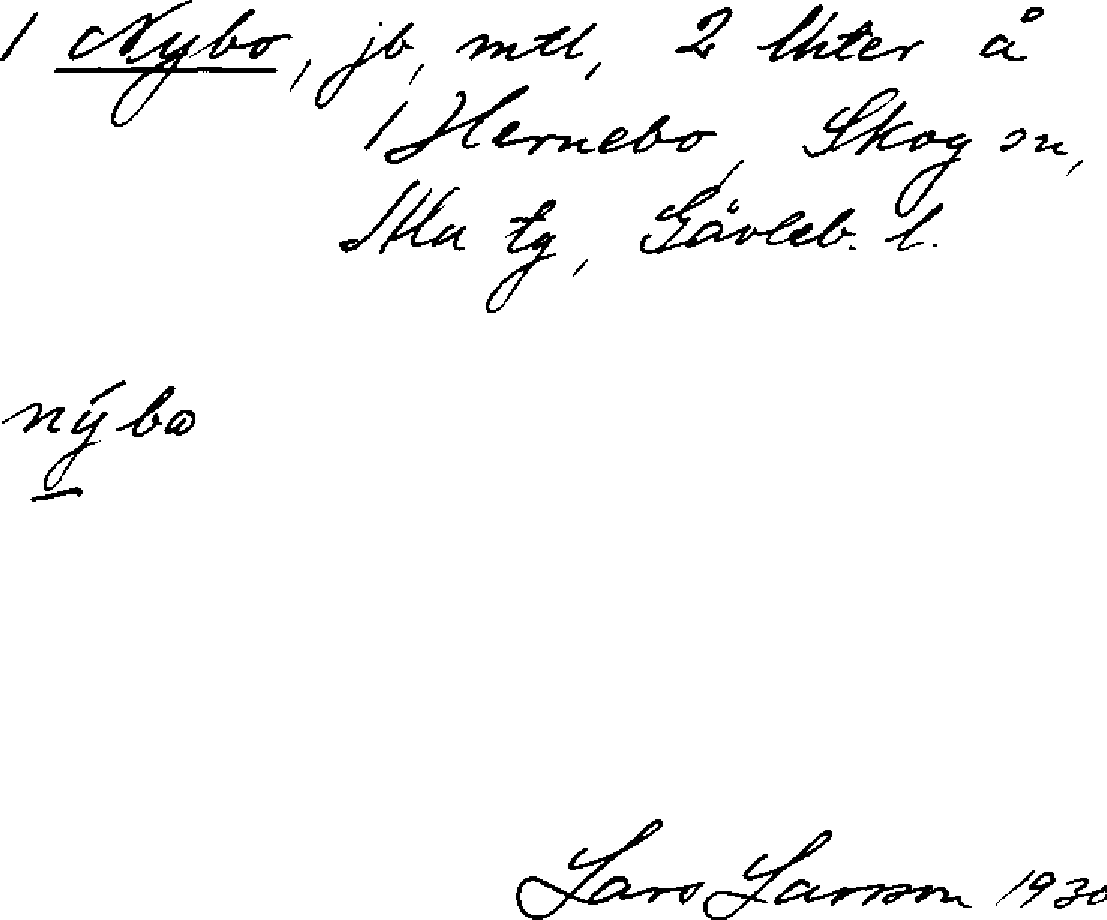 1 Nybo, jb, mtl, 2 lhter å
1 Hernebo, Skog sn,
Ala tg, Gävleb. l.
nýbω
Lars Larsson 1930